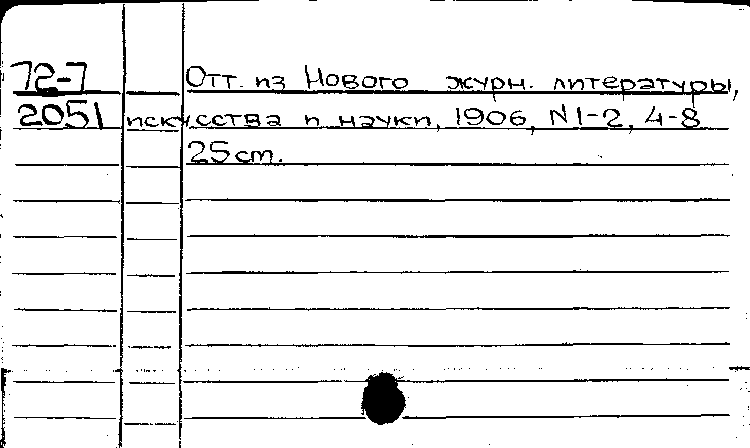 72-7 Отт. из Нового журн. литературы,
2051 искусства и науки, 1906, N1-2, 4-8
25cm.